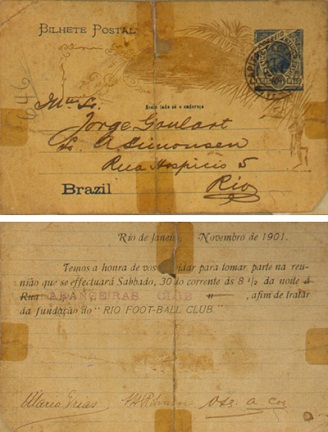 BILHETE POSTAL
646
N'este lado só o endereço
Jorge Goulart
Rua Hospicio 5
Rio
Brazil
Rio de Janeiro, Novembro de 1901.
Temos a honra de vos para tomar parte na reu-
nião que se effectuará Sabbado, 30 do corrente ás 8 1/2 da noite á
Rua LARANGEIRAS CLUB " , afim de tratar
da fundação do "RIO FOOT-BALL CLUB."
Mario